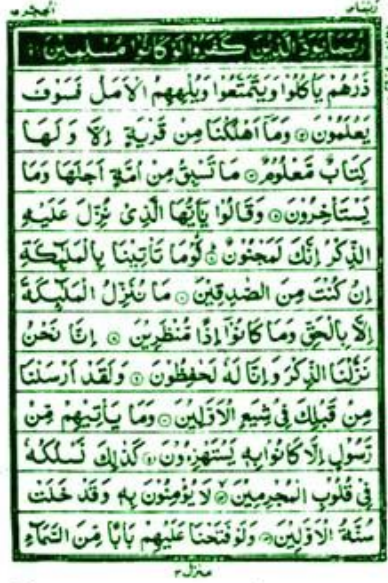 ربما ١٤
الحجر ١٥
رُبَمَا يَوَدُّ الَّذِيْنَ كَفَرُوْا لَوْ كَانُوْا مُسْلِمِيْنَ ۝
ذَرْهُمْ يَاْكُلُوْا وَيَتَمَتَّعُوْا وَيُلْهِهِمُ الْاَمَلُ فَسَوْفَ
يَعْلَمُوْنَ ۝ وَمَاۤ اَهْلَكْنَا مِنْ قَرْيَةٍ اِلَّا وَلَهَا
كِتَابٌ مَّعْلُوْمٌ ۝ مَا تَسْبِقُ مِنْ اُمَّةٍ اَجَلَهَا وَمَا
يَسْتَاْخِرُوْنَ ۝ وَقَالُوْا يٰۤاَيُّهَا الَّذِيْ نُزِّلَ عَلَيْهِ
الذِّكْرُ اِنَّكَ لَمَجْنُوْنٌ ۝ لَوْمَا تَاْتِيْنَا بِالْمَلٰٓئِكَةِ
اِنْ كُنْتَ مِنَ الصّٰدِقِيْنَ ۝ مَا نُنَزِّلُ الْمَلٰٓئِكَةَ
اِلَّا بِالْحَقِّ وَمَا كَانُوْۤا اِذًا مُّنْظَرِيْنَ ۝ اِنَّا نَحْنُ
نَزَّلْنَا الذِّكْرَ وَاِنَّا لَهٗ لَحٰفِظُوْنَ ۝ وَلَقَدْ اَرْسَلْنَا
مِنْ قَبْلِكَ فِيْ شِيَعِ الْاَوَّلِيْنَ ۝ وَمَا يَاْتِيْهِمْ مِّنْ
رَّسُوْلٍ اِلَّا كَانُوْا بِهٖ يَسْتَهْزِءُوْنَ ۝ كَذٰلِكَ نَسْلُكُهٗ
فِيْ قُلُوْبِ الْمُجْرِمِيْنَ ۝ لَا يُؤْمِنُوْنَ بِهٖ وَقَدْ خَلَتْ
سُنَّةُ الْاَوَّلِيْنَ ۝ وَلَوْ فَتَحْنَا عَلَيْهِمْ بَابًا مِّنَ السَّمَآءِ
منزل ٣